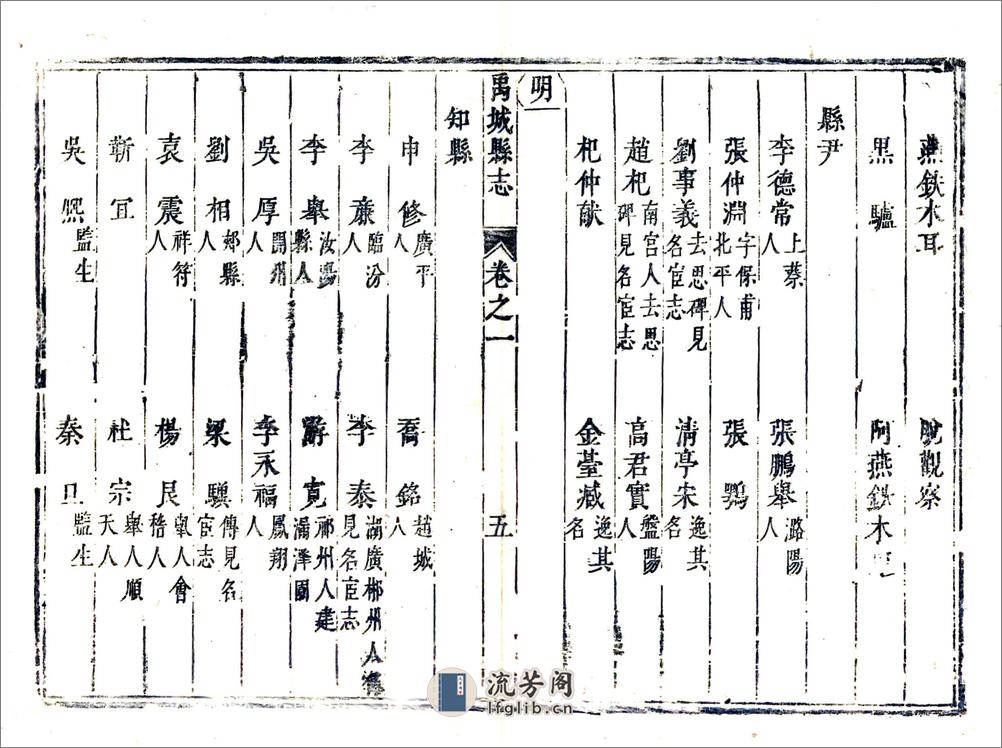 燕鉄木耳 脫觀察
黑驢 阿燕鉄木
縣尹
李德常上蔡人 張鵬舉潞陽人
張仲淵字保甫北平人 張鶚
劉事義去思碑見名宦志 清亭宋逸其名
趙杞南宮人去思碑見名宦志 高君實盤陽人
杞仲献 金臺臧逸其名
明
禹城縣志 卷之一 五
知縣
申修廣平人 喬銘趙城人
李亷臨汾人 李泰湖廣郴州人見名宦志
李舉汝陽縣人 游寬祁州人建漏澤園
吳厚開州人 李永福鳳翔人
劉相郟縣人 梁驥傳見名宦志
袁震祥符人 楊艮舉人會稽人
靳冝 杜宗舉人順天人
吳熈監生 秦旦監生
流芳阁
lfglib.cn